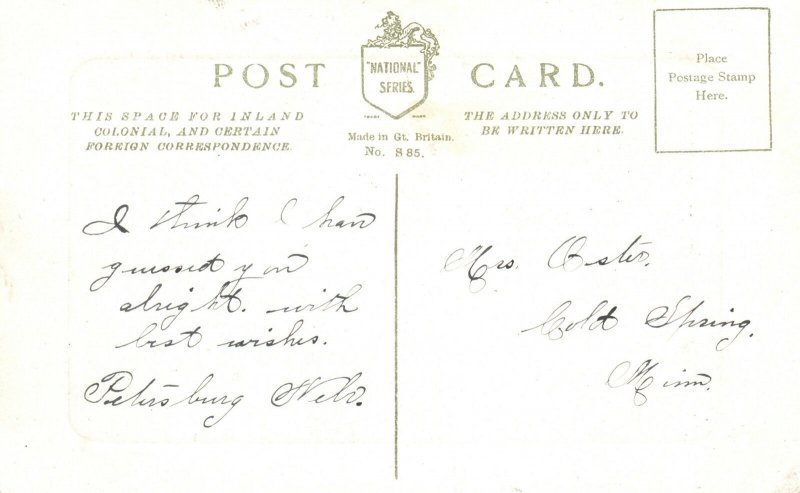 POST CARD.
"NATIONAL"
SERIES.
TRADE MARK
Made in Gt. Britain.
No. S 85.
THIS SPACE FOR INLAND
COLONIAL, AND CERTAIN
FOREIGN CORRESPONDENCE.
THE ADDRESS ONLY TO
BE WRITTEN HERE.
Place
Postage Stamp
Here.
I think I hav
guessed you
alright. with
best wishes.
Petersburg Nebr.
Mrs. Oster.
Cold Spring.
Minn.